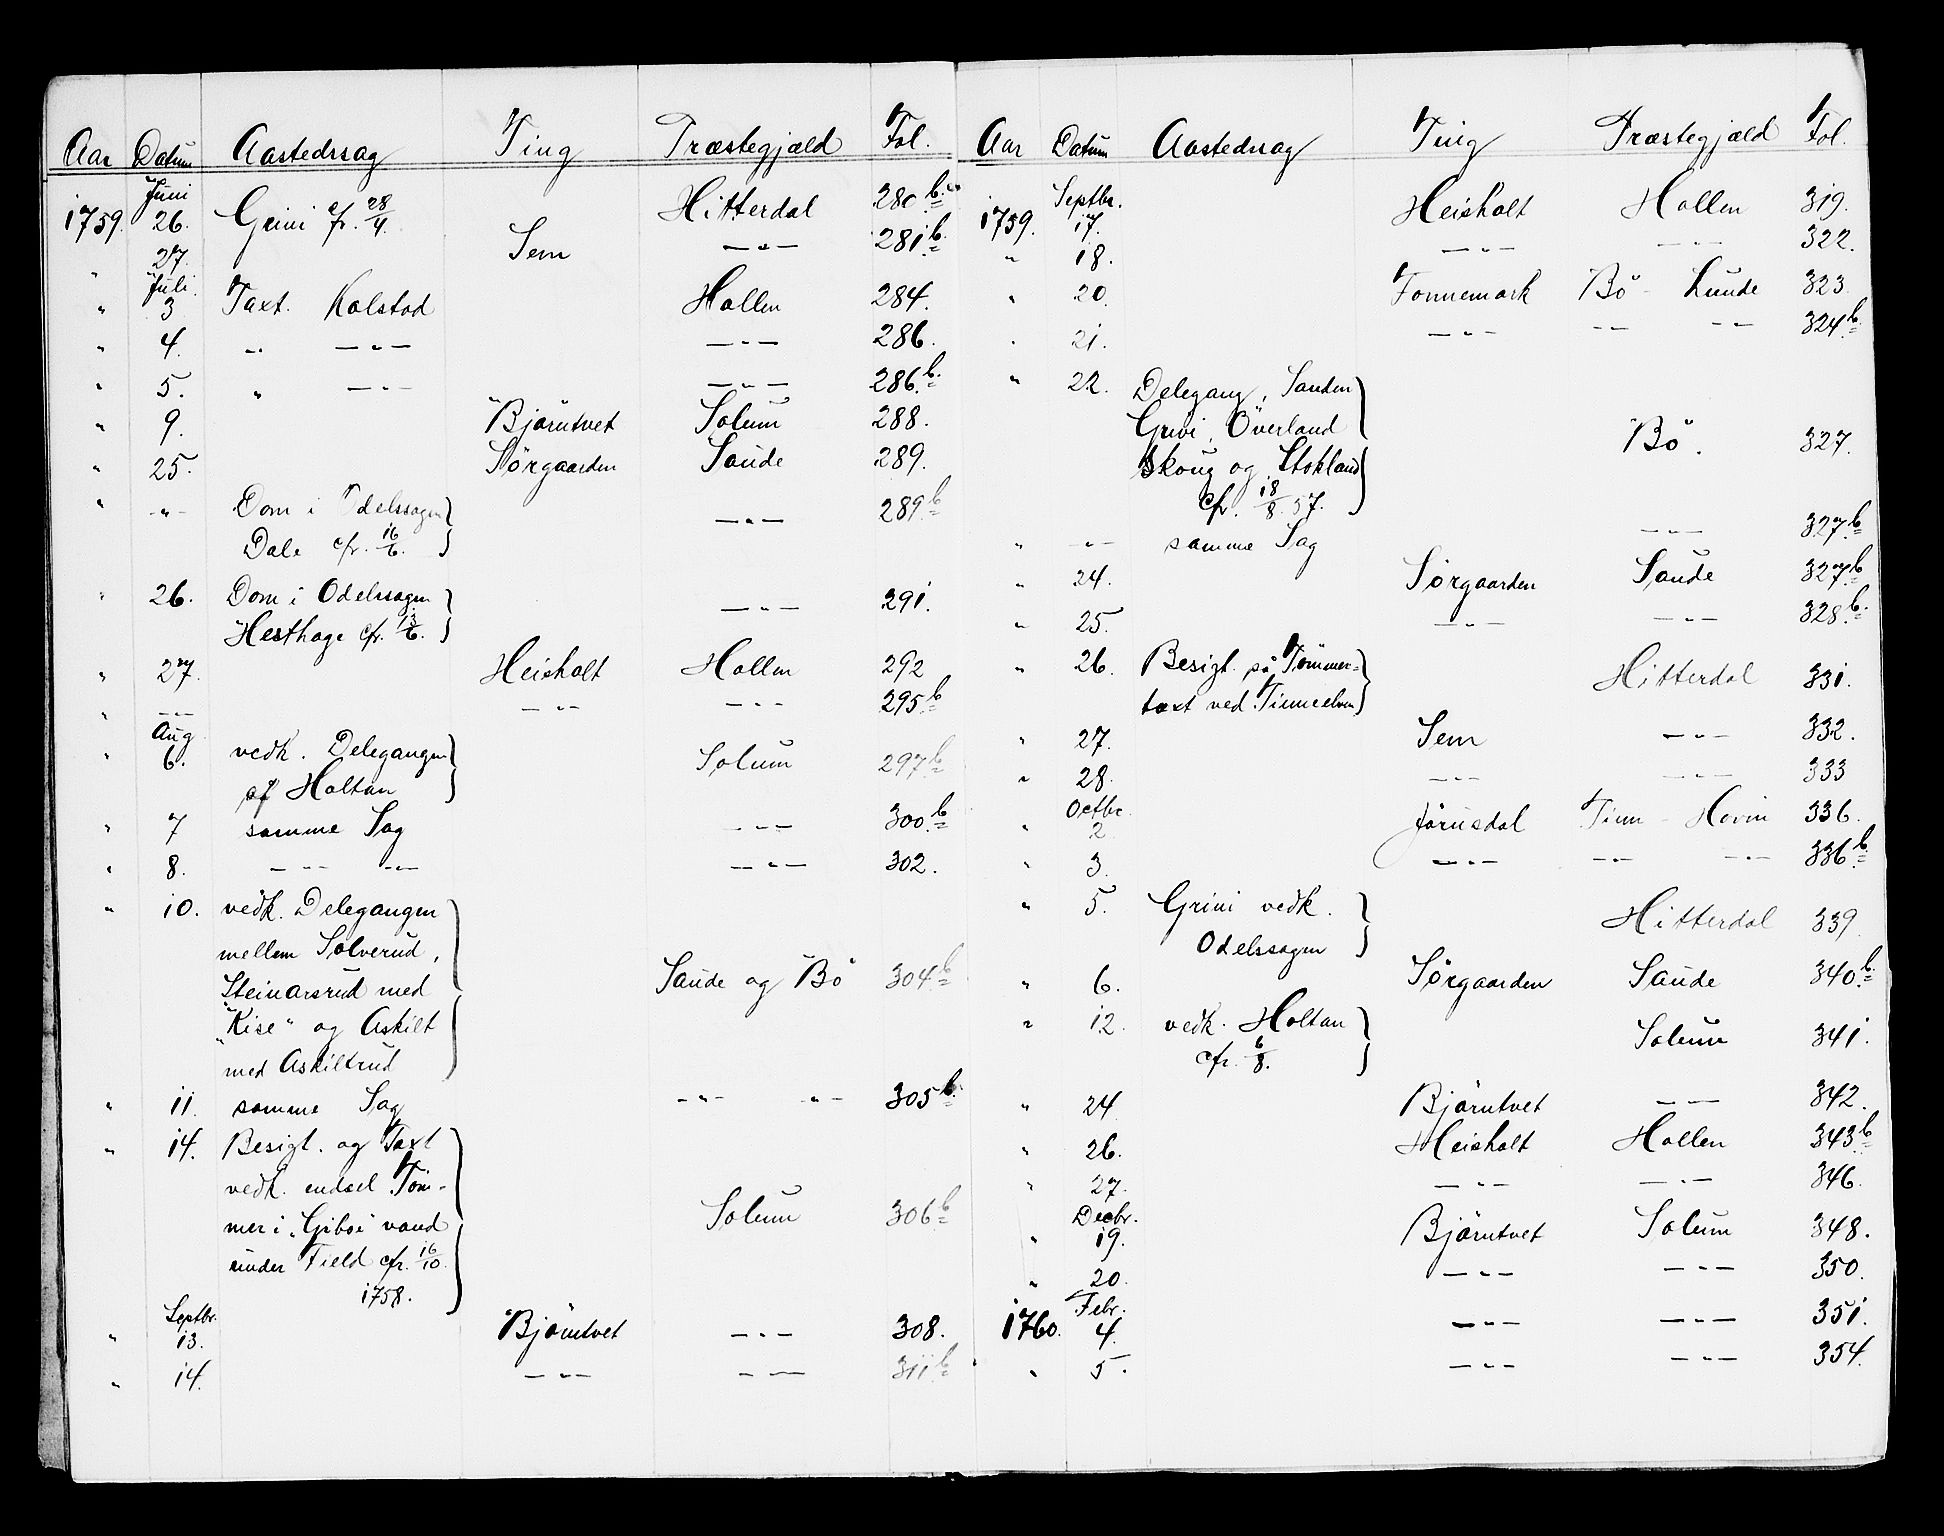 Aar Datum Aastedssag Ting Præstegjæld Fol.
Juni
1759. 26. Grini cfr. 28/4. Hitterdal 280.b.
" 27. Sem — " — 281.b.
Juli
" 3 Taxt. Kolstad Hollen 284.
" 4. " — " — — " — 286.
" 5. " — " — — " — 286.b.
" 9. Bjørntvet Solum 288.
" 25. Sørgaarden Saude 289.
" — " — Dom i Odelssagen — " — 289.b
Dale cfr. 16/6.
" 26. Dom i Odelssagen — " — 291.
Hesthage cfr. 13/6.
" 27. Heisholt Hollen 292
" — — — " — — " — 295.b
Aug
" 6. vedk. Delegangen Solum 297b
af Holtan
" 7 samme Sag — " — 300.b
" 8. — " — — " — — " — 302.
" 10. vedk. Delegangen
mellem Solverud,
Steinarsrud med Saude og Bø 304b
"Kise" og Askilt
med Askiltrud
" 11. samme Sag — " — — " — 305b.
" 14. Besigt. og Taxt
vedk. endsel Tøm-
mer i "Gibøi vand Solum 306b
under Field cfr. 16/10.
1758.
Septbr.
" 13. Bjørntvet — " — 308.
" 14. — " — — " — 311b
Aar Datum Aastedssag Ting Præstegjæld Fol.
Septbr.
1759. 17. Heisholt Hollen 319.
" 18. — " — — " — 322.
" 20. Fonnemark Bø - Lunde 323
" 21. — " — — " — — " — 324.b.
" 22. Delegang, Sanden
Grivi, Överland Bø. 327.
Skoug og Stokland
cfr. 18/8. 57.
" — " — samme Sag — " — 327.b
" 24. Sørgaarden Saude 327.b
" 25. — " — — " — 328.b.
" 26. Besigt. på Tømmer= Hitterdal 331.
taxt ved Tinneelven
" 27. Sem — " — 332.
" 28. — " — — " — 333
Octbr.
" 2 Jørnsdal Tinn - Hovin 336.
" 3. — " — — " — — " — 336.b
" 5. Grini vedk. Hitterdal 339
Odelssagen
" 6. Sørgaarden Saude 340.b.
" 12. vedk. Holtan Solum 341.
cfr. 6/8.
" 24 Bjørntvet — " — 342.
" 26. Heisholt Hollen 343b
" 27. — " — — " — 346.
Decbr.
" 19. Bjørntvet Solum 348.
" 20. — " — — " — 350.
Febr.
1760. 4. — " — — " — 351.
" 5. — " — — " — 354.